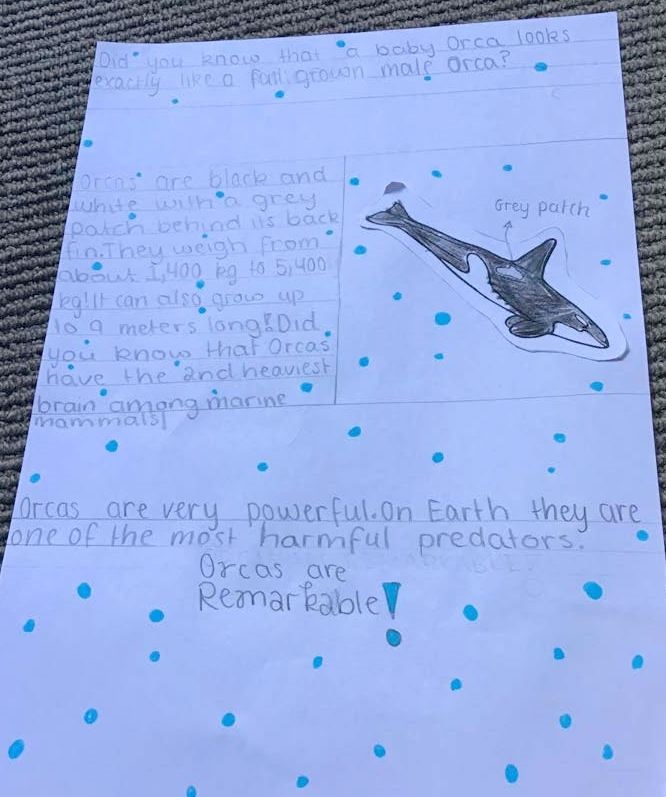 Did you know that a baby Orca looks
exactly like a full grown male Orca?
Orcas are black and
white with a grey
patch behind its back
fin. They weigh from
about 1,400 kg to 5,400
kg! It can also grow up
to 9 meters long! Did
you know that Orcas
have the 2nd heaviest
brain among marine
mammals!
Grey patch
Orcas are very powerful. On Earth they are
one of the most harmful predators.
Orcas are
Remarkable!